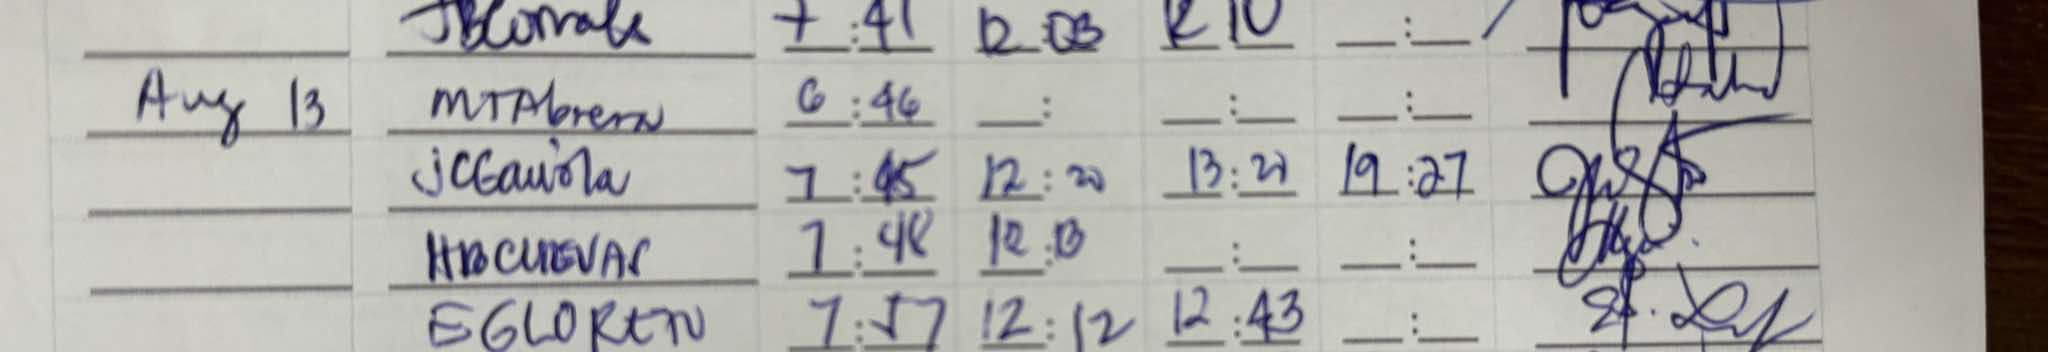 7:41 12:03 12 10 __:__
Aug 13 MTAbrera 6:46 __: __:__ __:__
JCGaviola 7:45 12:20 13:21 19:27
HBCUEVAS 7:48 12:13 __:__ __:__
EGLOREN 7:57 12:12 12:43 __:__